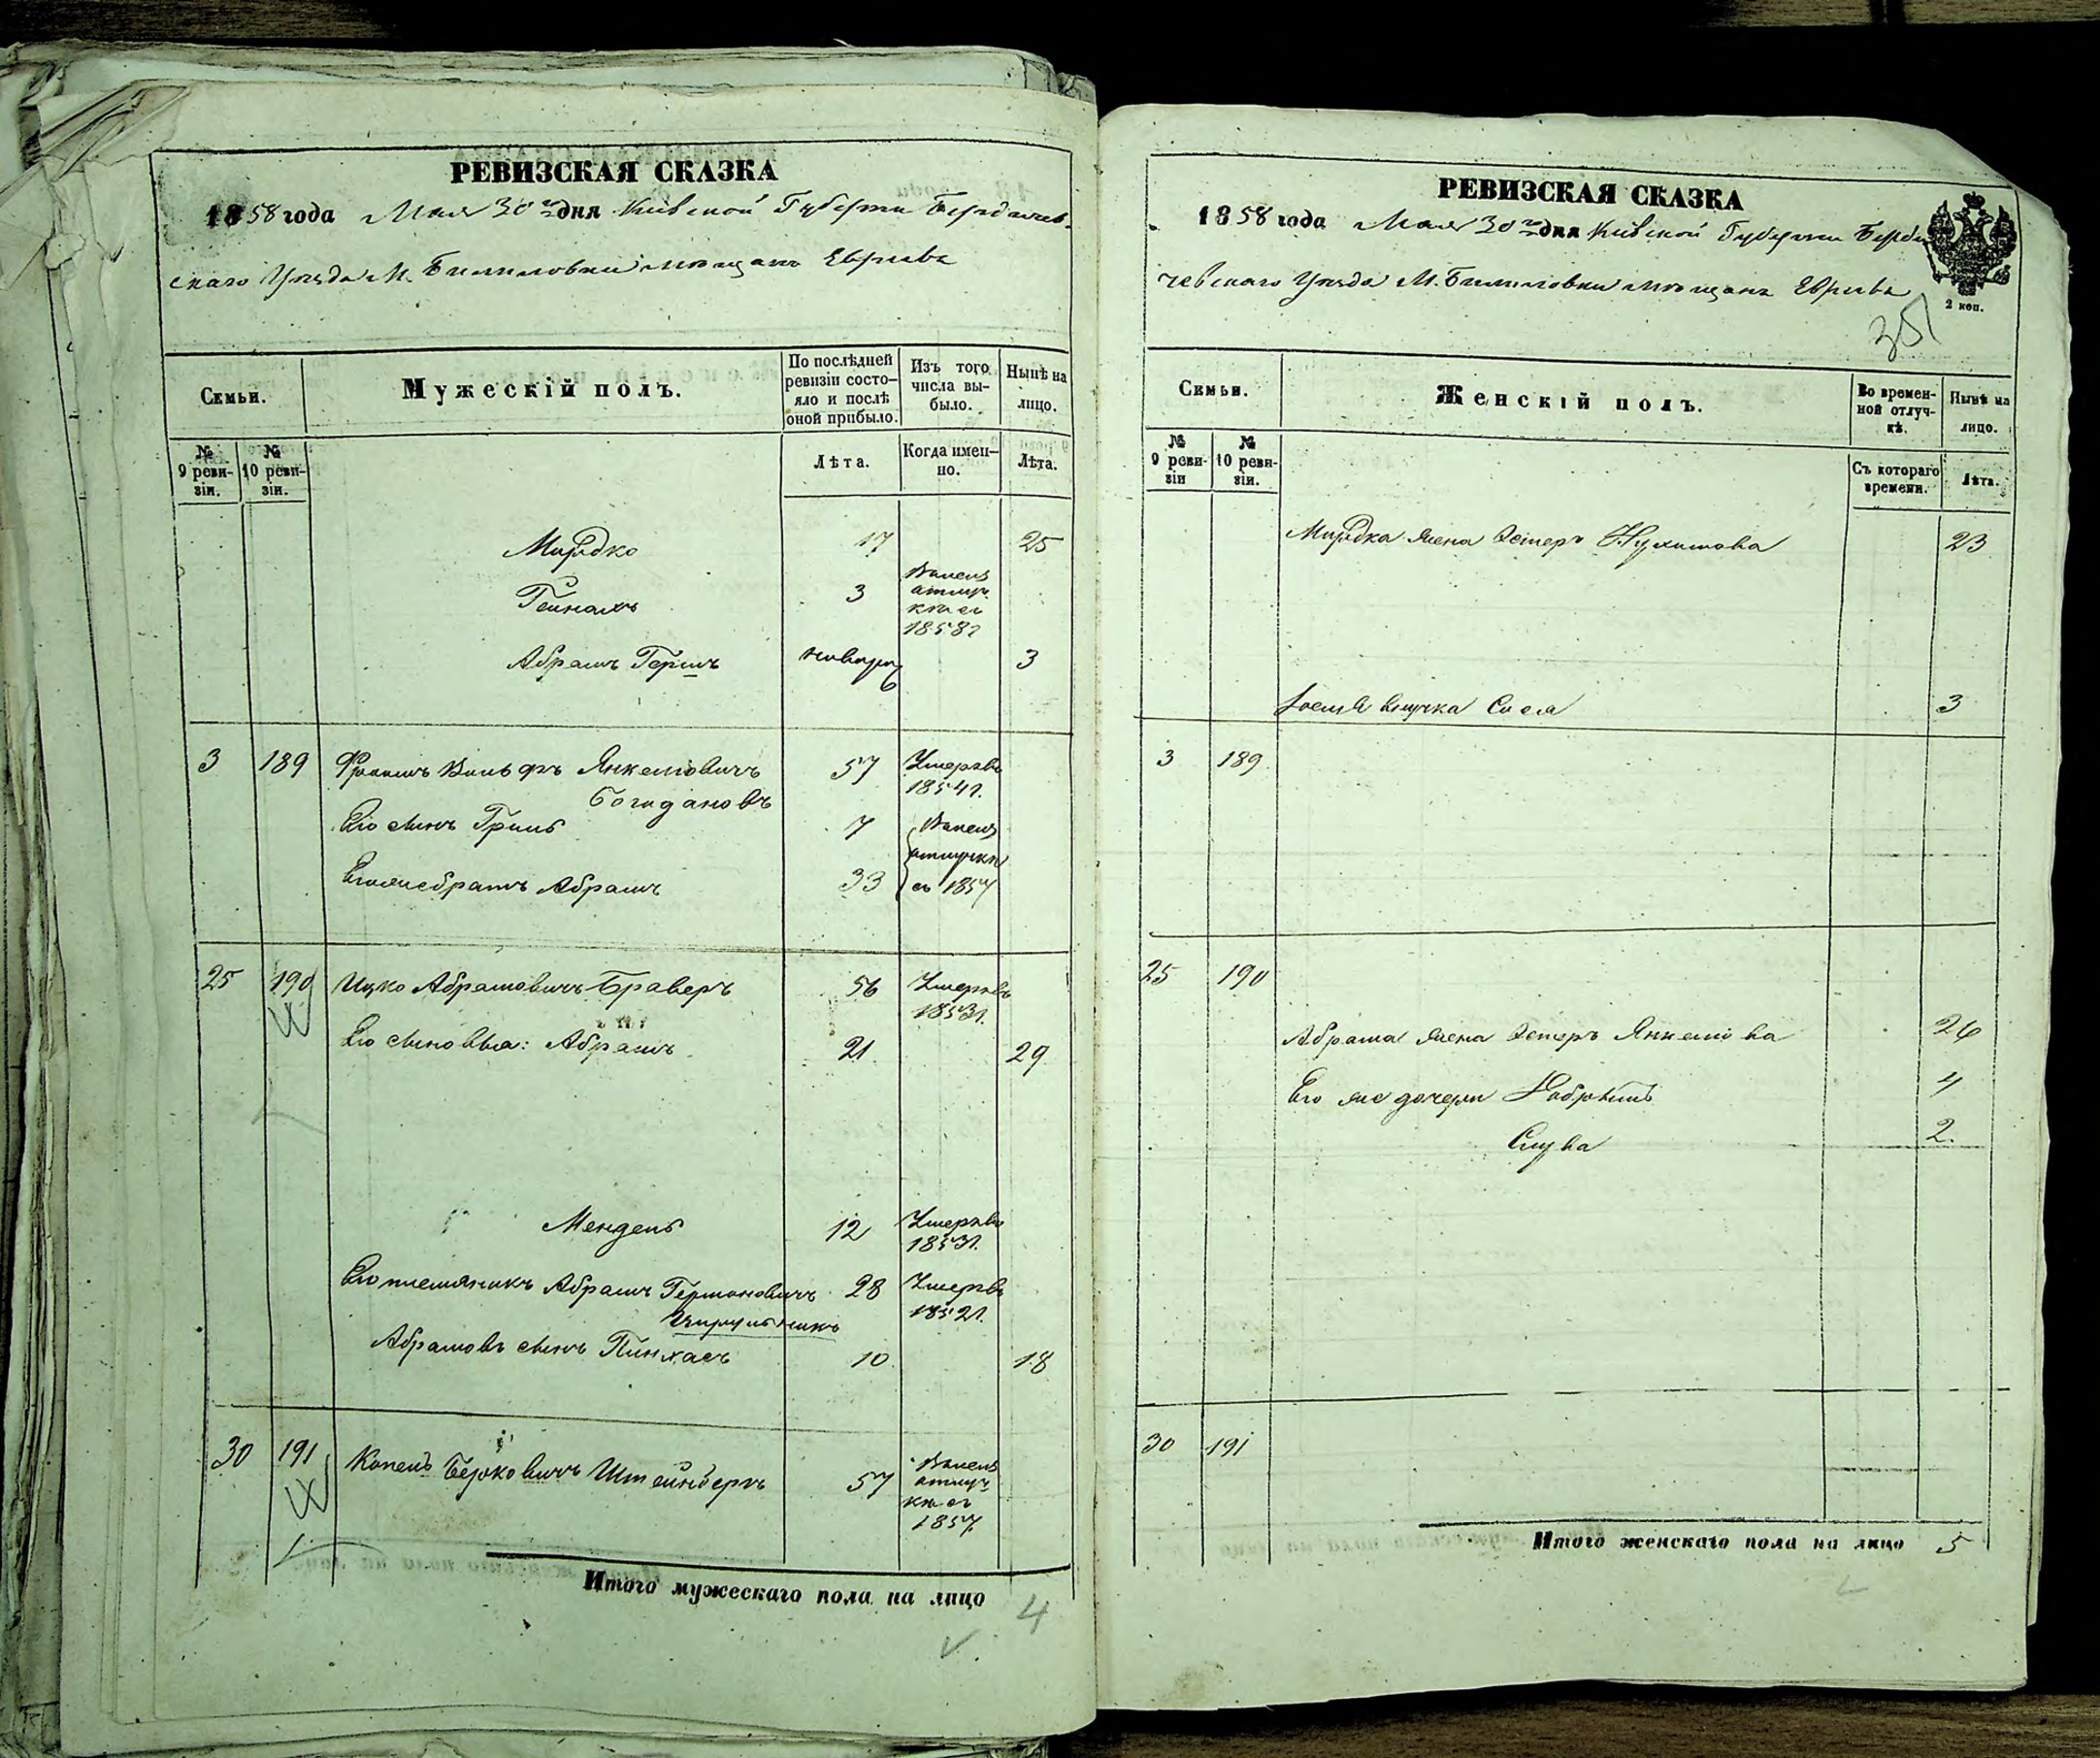 РЕВИЗСКАЯ СКАЗКА
1858 года Мая 30го дня Кіевской Губерніи Бердичев-
скаго Уезда М. Билиловки мѣщанъ Евреевъ
Семьи.
Мужескій полъ.
По послѣдней ревизіи состо-яло и послѣ оной прибыло.
Изъ того числа вы-было.
Нынѣ на лицо.
№ 9 реви-зіи.
№ 10 реви-зіи.
Лѣта.
Когда имен-но.
Лѣта.
Мордко 17 25
Гейнахъ 3 Внѣ отлучкѣ съ 1858г
Абрамъ Гершъ 3
3 189 Вольфъ Янкелiовичъ 57 Умеръ въ 1854г.
Богдановъ
Его сынъ 7
Егоже братъ Абрамъ 33 съ 1857
25 190 Ицко Абрамовичъ Браверъ 56 Умеръ въ 1853г.
Его сыновья: Абрамъ 21 29
Мендель 12 Умеръ въ 1853г.
Его племяникъ Абрамъ Гершоновичъ 28 Умеръ въ 1852г.
Цирульникъ
Абрамовъ сынъ Пинхасъ 10 18
30 191 Копель Берковичъ Штейнберъ 57 1857
Итого мужескаго пола на лицо 4
РЕВИЗСКАЯ СКАЗКА
1858 года Мая 30го дня Кіевской Губерніи Берди
чевскаго Уезда М. Билиловки мѣщанъ Евреевъ
2 коп.
351
Семьи.
Женскій полъ.
Во времен-ной отлуч-кѣ.
Нынѣ на лицо.
№ 9 реви-зіи
№ 10 реви-зіи.
Съ котораго времени.
Лѣта.
Мордка жена Эстеръ 23
внучка Сося 3
3 189
25 190
Абрама жена Эстеръ Янкелiова 26
Его же дочери 4
Слува 2.
30 191
Итого женскаго пола на лицо 5